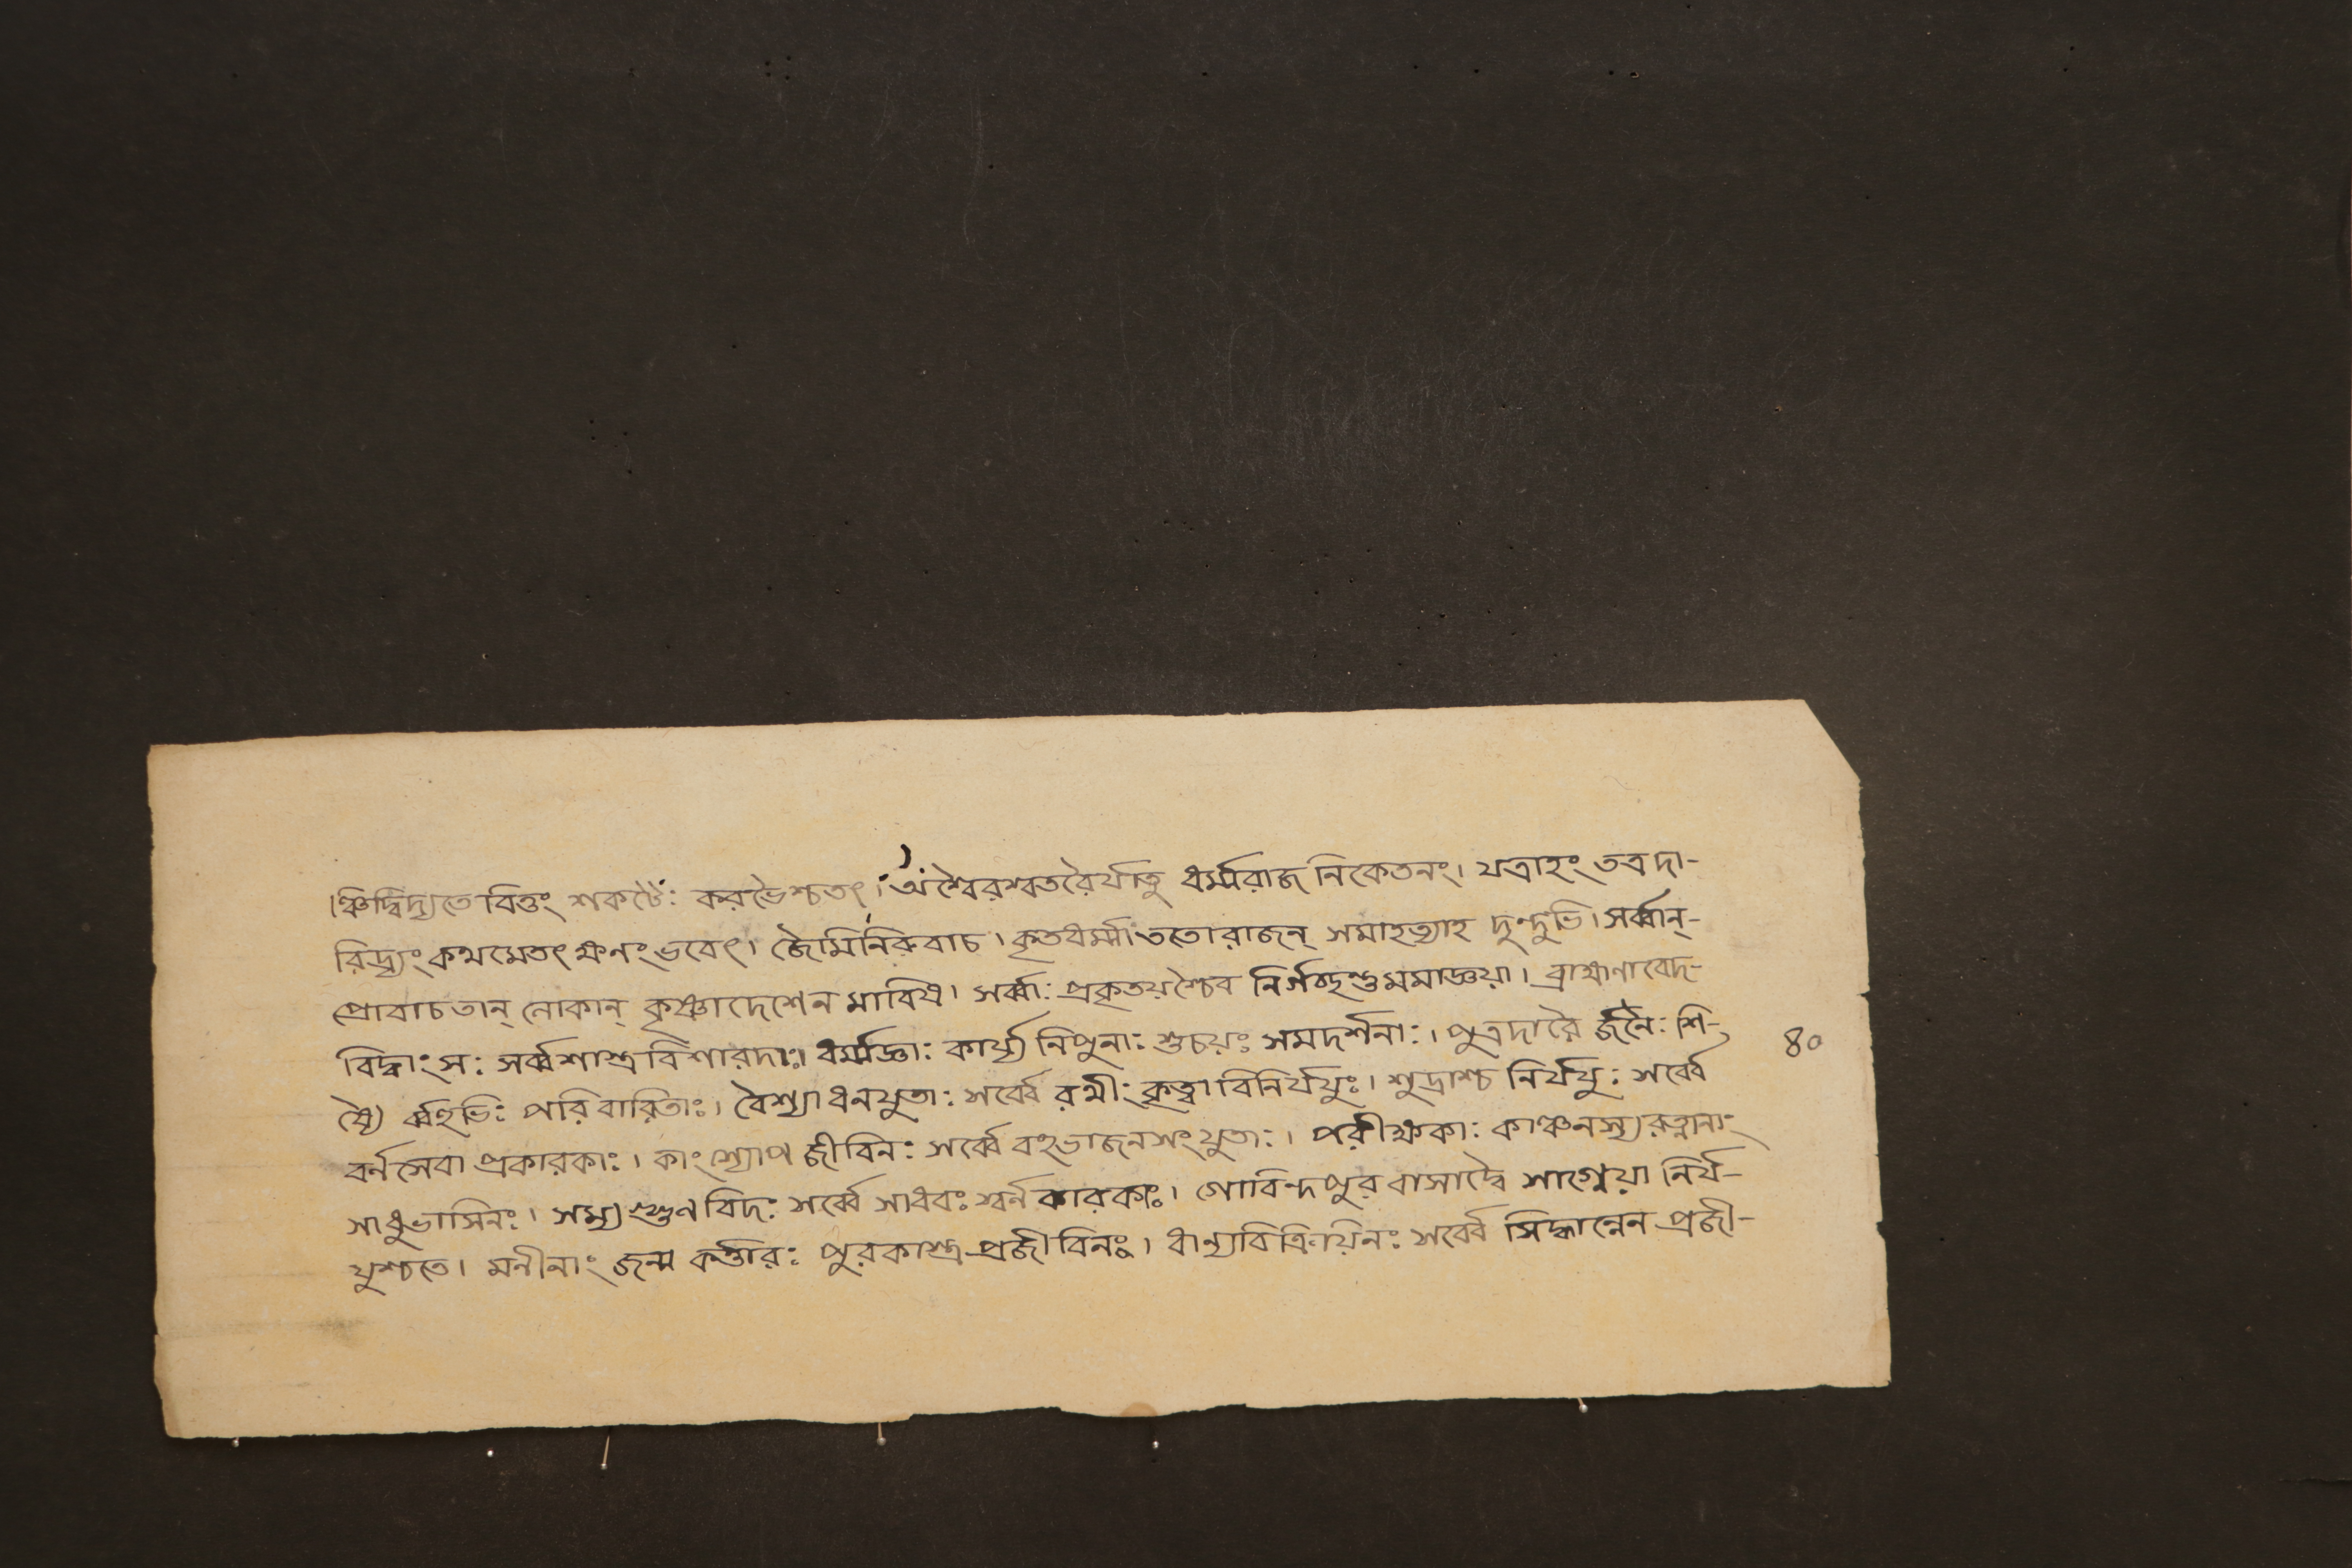 ।ঞ্চিদ্বিদ্যতে বিত্তং শকটৈঃ করভৈশ্চতৎ। অশ্বৈরশ্বতরৈর্যাতু ধর্ম্মরাজ নিকেতনং। যত্রাহং তত্র দা-
রিদ্র্যং কথমেতৎ ক্ষনং ভবেৎ। জৈমিনিরুবাচ। কৃতবর্ম্মা ততো রাজন্ সমাহত্যাহ দুন্দুভি। সর্ব্বান্-
প্রোবাচ তান্ লোকান্ কৃষ্ণাদেশেন মারিষ। সর্ব্বাঃ প্রকৃতয়শ্চৈব নির্গচ্ছন্তু মমাজ্ঞয়া। ব্রাহ্মণা বেদ-
বিদ্বাংসঃ সর্ব্বশাস্ত্র বিশারদাঃ। ধর্ম্মজ্ঞাঃ কার্য্য নিপুনাঃ শুচয়ঃ সমদর্শনাঃ। পুত্রদারৈ র্জনৈঃ শি-
ষ্যৈ র্ব্বহুভিঃ পরিবারিতাঃ। বৈশ্যা ধনযুতাঃ সর্ব্বে রথীং কৃত্বা বিনির্যযুঃ। শূদ্রাশ্চ নির্যযুঃ সর্ব্বে
বর্ন সেবা প্রকারকাঃ। কাংশ্যোপজীবিনঃ সর্ব্বে বহুভাজনসংযুতাঃ। পরীক্ষকাঃ কাঞ্চনস্য রত্নানাং
সাধুভাসিনঃ। সম্যগ্গুণবিদঃ সর্ব্বে সাধবঃ স্বর্ন কারকাঃ। গোবিন্দপুর বাসাদ্বৈ নির্য-
যুশ্চতে। মনীনাং জন্ম কর্ত্তারঃ প্রজীবিনঃ। ধান্যবিক্রয়িনঃ সর্ব্বে সিদ্ধান্নেন প্রজী-
৪০